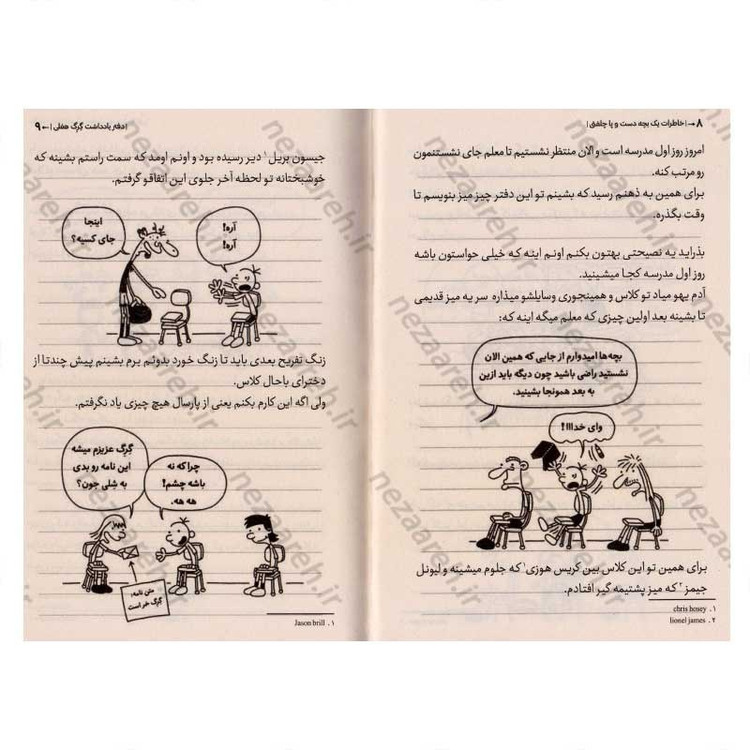 ۸ → | خاطرات یک بچه دست و پا چلفتی |
امروز روز اول مدرسه است و الان منتظر نشستیم تا معلم جای نشستنمون
رو مرتب کنه.
برای همین به ذهنم رسید که بشینم تو این دفتر چیز میز بنویسم تا
وقت بگذره.
بذراید یه نصیحتی بهتون بکنم اونم اینه که خیلی حواستون باشه
روز اول مدرسه کجا میشینید.
آدم یهو میاد تو کلاس و همینجوری وسایلشو میذاره سر یه میز قدیمی
تا بشینه بعد اولین چیزی که معلم میگه اینه که:
بچه‌ها امیدوارم از جایی که همین الان
نشستید راضی باشید چون دیگه باید ازین
به بعد همونجا بشینید.
وای خدااا!
برای همین تو این کلاس بین کریس هوزی۱ که جلوم میشینه و لیونل
جیمز۲ که میز پشتیمه گیر افتادم.
۱. chris hosey
۲. lionel james
| دفتر یادداشت گرگ هفلی | ← ۹
جیسون بریل۱ دیر رسیده بود و اونم اومد که سمت راستم بشینه که
خوشبختانه تو لحظه آخر جلوی این اتفاقو گرفتم.
اینجا
جای کسیه؟
آره!
آره!
زنگ تفریح بعدی باید تا زنگ خورد بدوئم برم بشینم پیش چندتا از
دخترای باحال کلاس.
ولی اگه این کارم بکنم یعنی از پارسال هیچ چیزی یاد نگرفتم.
گرگ عزیزم میشه
این نامه رو بدی
به شلی جون؟
چرا که نه
باشه چشم!
هه هه.
متن نامه:
گرگ خر است
۱. Jason brill
nezaareh.ir